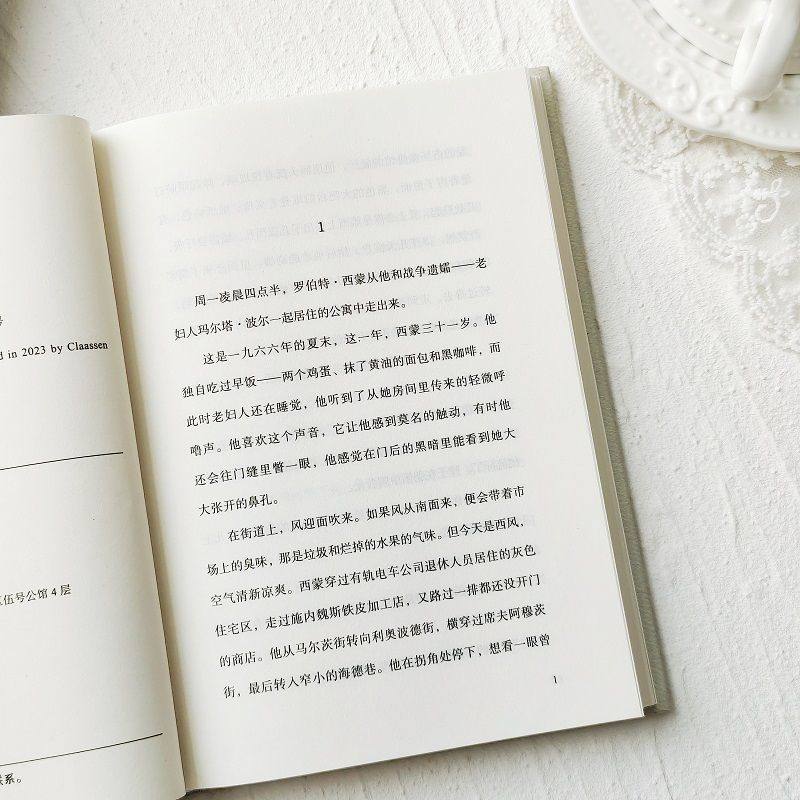 d in 2023 by Claassen
伍号公馆 4 层
联系。
1
周一凌晨四点半，罗伯特·西蒙从他和战争遗孀——老
妇人玛尔塔·波尔一起居住的公寓中走出来。
这是一九六六年的夏末，这一年，西蒙三十一岁。他
独自吃过早饭——两个鸡蛋、抹了黄油的面包和黑咖啡，而
此时老妇人还在睡觉，他听到了从她房间里传来的轻微呼
噜声。他喜欢这个声音，它让他感到莫名的触动，有时他
还会往门缝里瞥一眼，他感觉在门后的黑暗里能看到她大
大张开的鼻孔。
在街道上，风迎面吹来。如果风从南面来，便会带着市
场上的臭味，那是垃圾和烂掉的水果的气味。但今天是西风，
空气清新凉爽。西蒙穿过有轨电车公司退休人员居住的灰色
住宅区，走过施内魏斯铁皮加工店，又路过一排都还没开门
的商店。他从马尔茨街转向利奥波德街，横穿过席夫阿穆茨
街，最后转入窄小的海德巷。他在拐角处停下，想看一眼曾
1